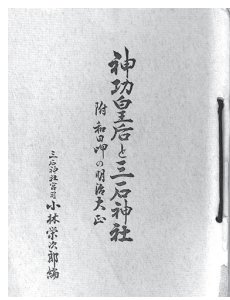 神功皇后と三石神社
附 和田岬の明治大正
三石神社宮司 小林栄次郎編